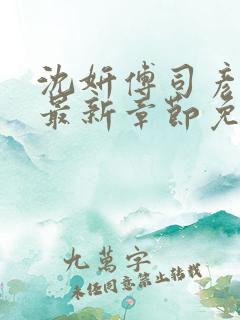 沈妍傅司彦
最新章節免
九萬字
未经同意禁止转载